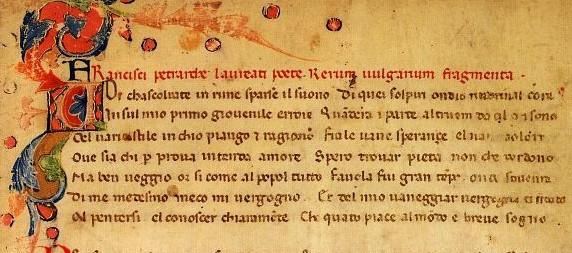 FRancisci petrarche laureati poete. Rerum vulgarium fragmenta.
Voi chascoltate in rime sparse il suono Di quei sospiri ondio nudriual core
In sul mio primo giouenile errore Quandera in parte altruom da quel chi sono
Del vario stile in chio piango et ragiono Fra le uane speranze el uan dolore
Oue sia chi per proua intenda amore Spero trouar pieta non che perdono
Ma ben veggio or si come al popol tutto Fauola fui gran tempo onde souente
Di me medesmo meco mi vergogno Et del mio vaneggiar vergogna el frutto
El pentersi el conoscer chiaramente Che quanto piace al mondo e breue sogno